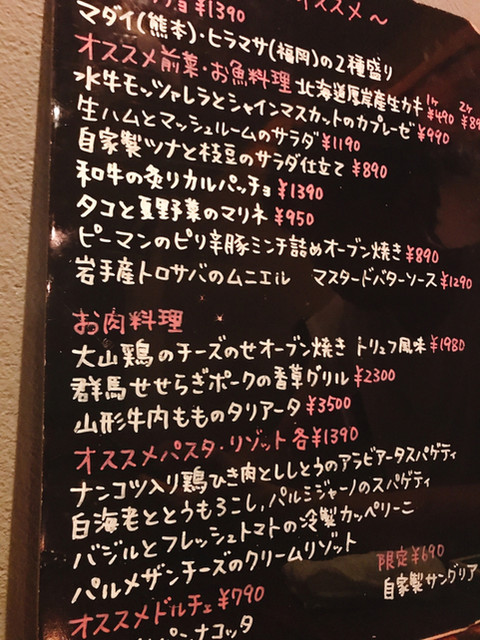 ョ¥1390 オススメ〜
マダイ(熊本)・ヒラマサ(福岡)の2種盛り
オススメ前菜・お魚料理 北海道厚岸産生カキ 1ヶ ¥490 2ヶ ¥89
水牛モッツァレラとシャインマスカットのカプレーゼ ¥990
生ハムとマッシュルームのサラダ ¥1190
自家製ツナと枝豆のサラダ仕立て ¥890
和牛の炙りカルパッチョ ¥1390
タコと夏野菜のマリネ ¥950
ピーマンのピリ辛豚ミンチ詰めオーブン焼き ¥890
岩手産トロサバのムニエル マスタードバターソース ¥1290
お肉料理
大山鶏のチーズのせオーブン焼き トリュフ風味 ¥1980
群馬せせらぎポークの香草グリル ¥2300
山形牛内もものタリアータ ¥3500
オススメパスタ・リゾット 各¥1390
ナンコツ入り鶏ひき肉としし とうのアラビアータスパゲティ
白海老ととうもろこし,パルミジャーノのスパゲティ
バジルとフレッシュトマトの冷製カッペリーニ
パルメザンチーズのクリームリゾット
限定¥690
自家製サングリア
オススメドルチェ ¥790
パンナコッタ